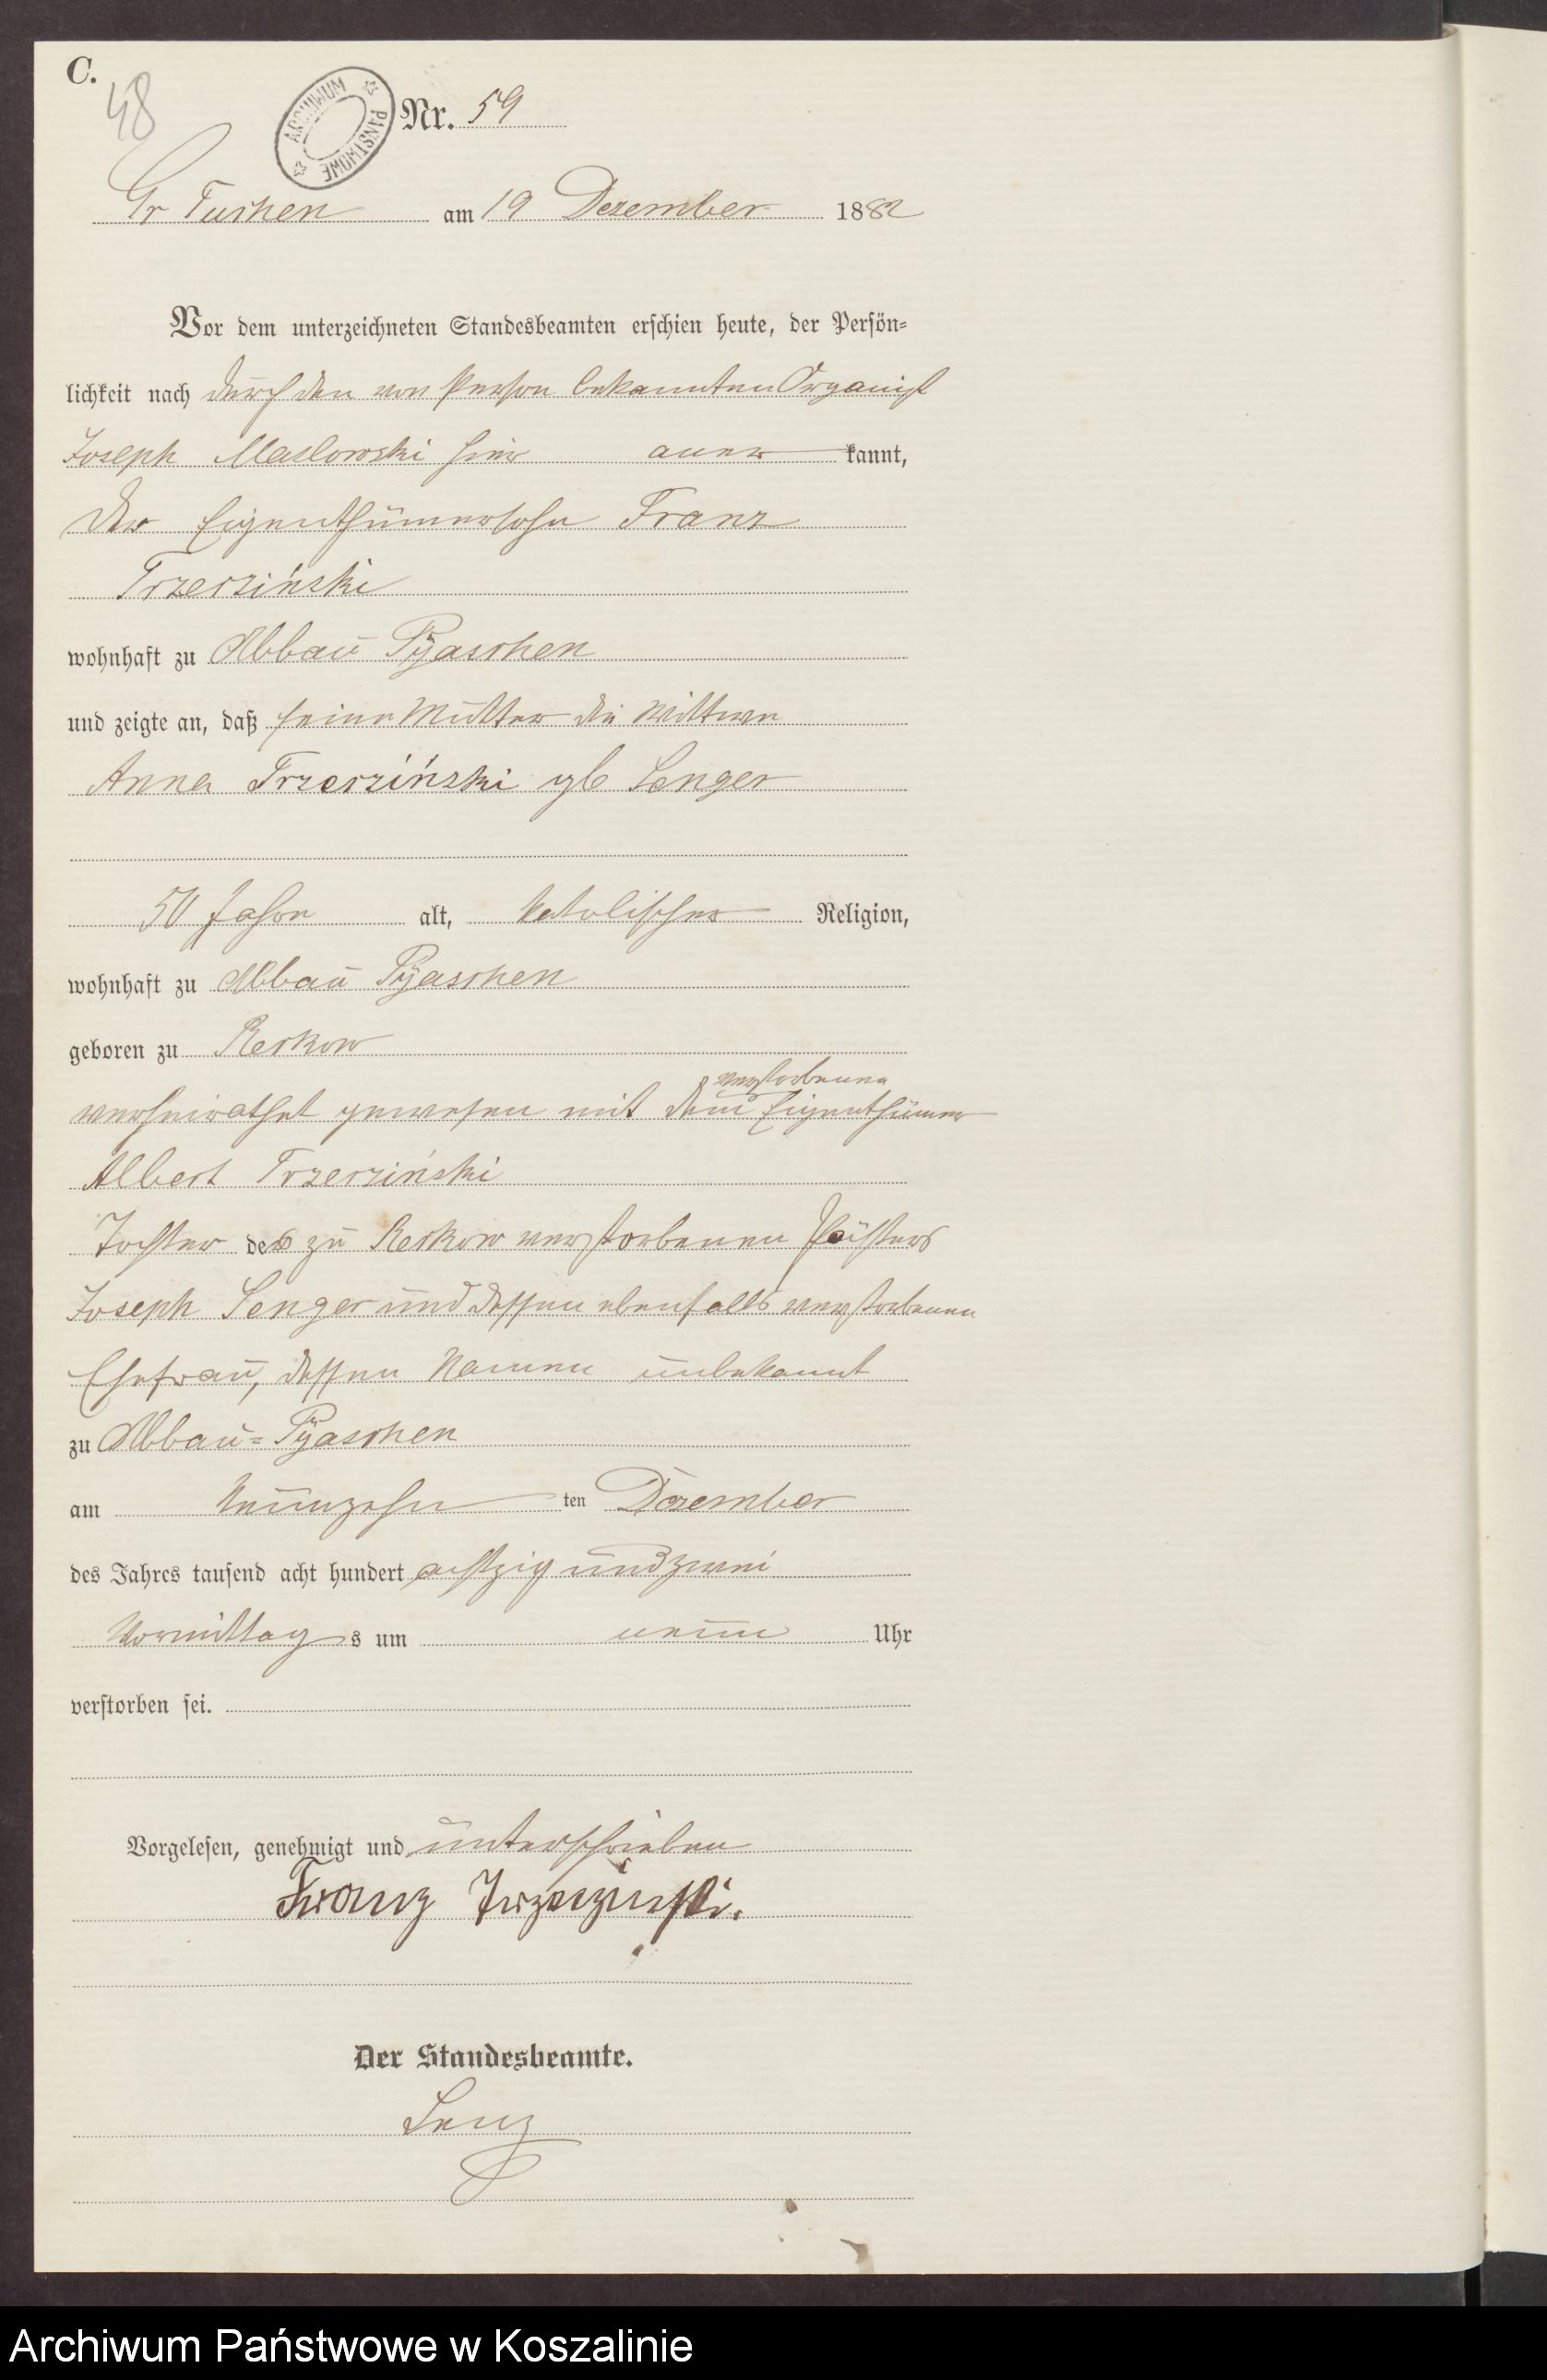 C.
48
ARCHIWUM PAŃSTWOWE
Nr. 59
Gr Tuchen am 19 Dezember 1882
Vor dem unterzeichneten Standesbeamten erschien heute, der Persön-
lichkeit nach durch den von Person bekannten Organist
Joseph Maslowski hier aner kannt,
der Eigenthümersohn Franz
Trzerziński
wohnhaft zu Abbau Pyaschen
und zeigte an, daß seine Mutter die Wittwe
Anna Trzerziński geb Senger
50 Jahre alt, katolischer Religion,
wohnhaft zu Abbau Pyaschen
geboren zu Reckow
verstorbenen
verheirathet gewesen mit dem Eigenthümer
Albert Trzerziński
Tochter des zu Reckow verstorbenen
Joseph Senger und dessen ebenfalls verstorbenen
Ehefrau, dessen Namen unbekannt
zu Abbau-Pyaschen
am Neunzehn ten Dezember
des Jahres tausend acht hundert achtzig und zwei
Vormittag s um neun Uhr
verstorben sei.
Vorgelesen, genehmigt und unterschrieben
Franz Trzerzinski.
Der Standesbeamte.
Lenz
Archiwum Państwowe w Koszalinie